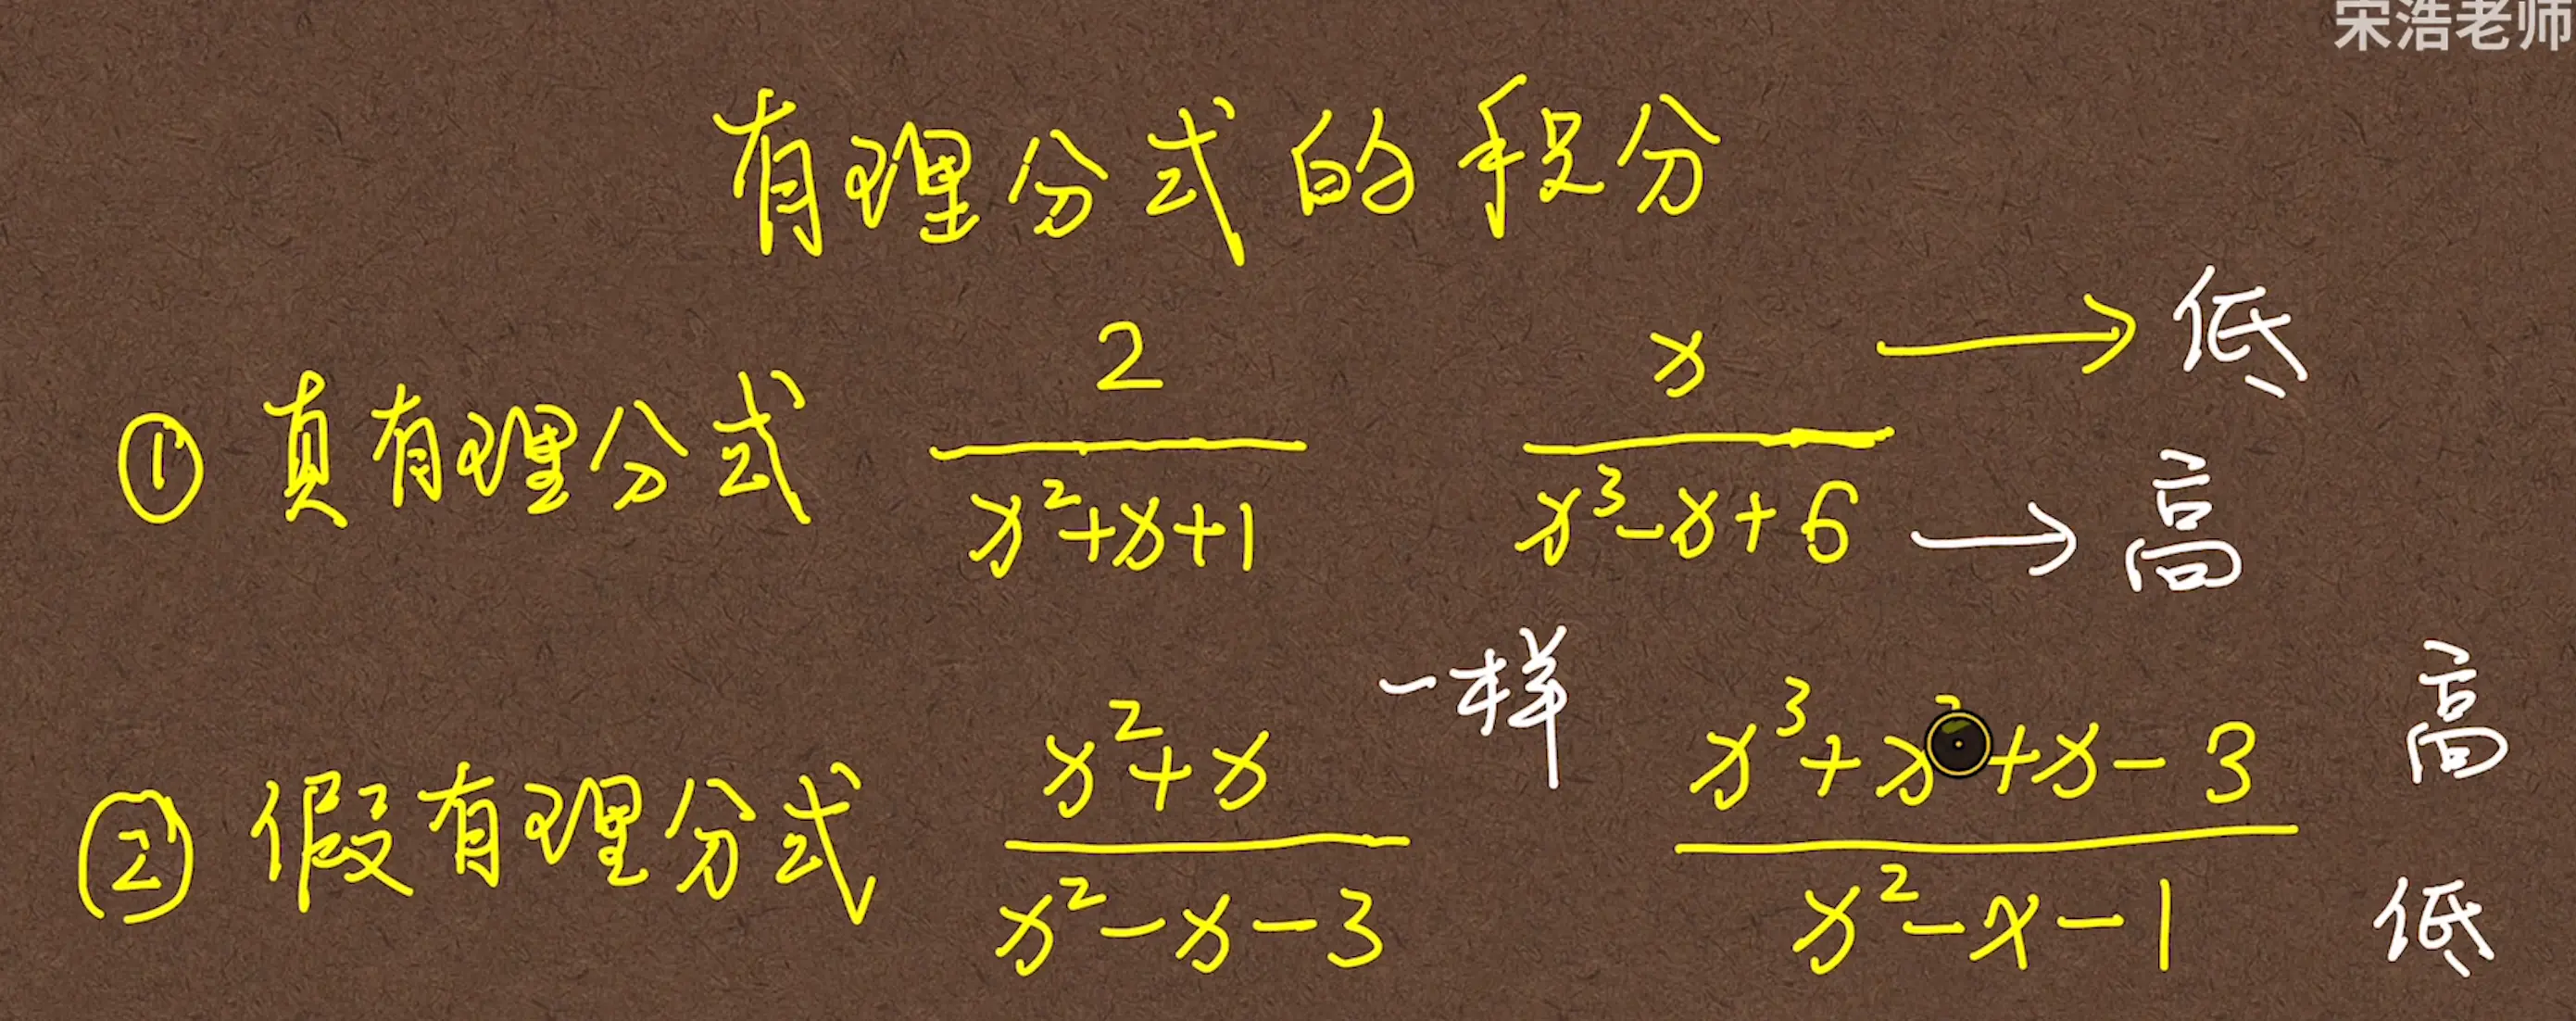 宋浩老师
有理分式的积分
① 真有理分式 2/(x²+x+1) x/(x³-x+6) → 低 → 高
② 假有理分式 (x²+x)/(x²-x-3) 一样 (x³+x²+x-3)/(x²-x-1) 高 低